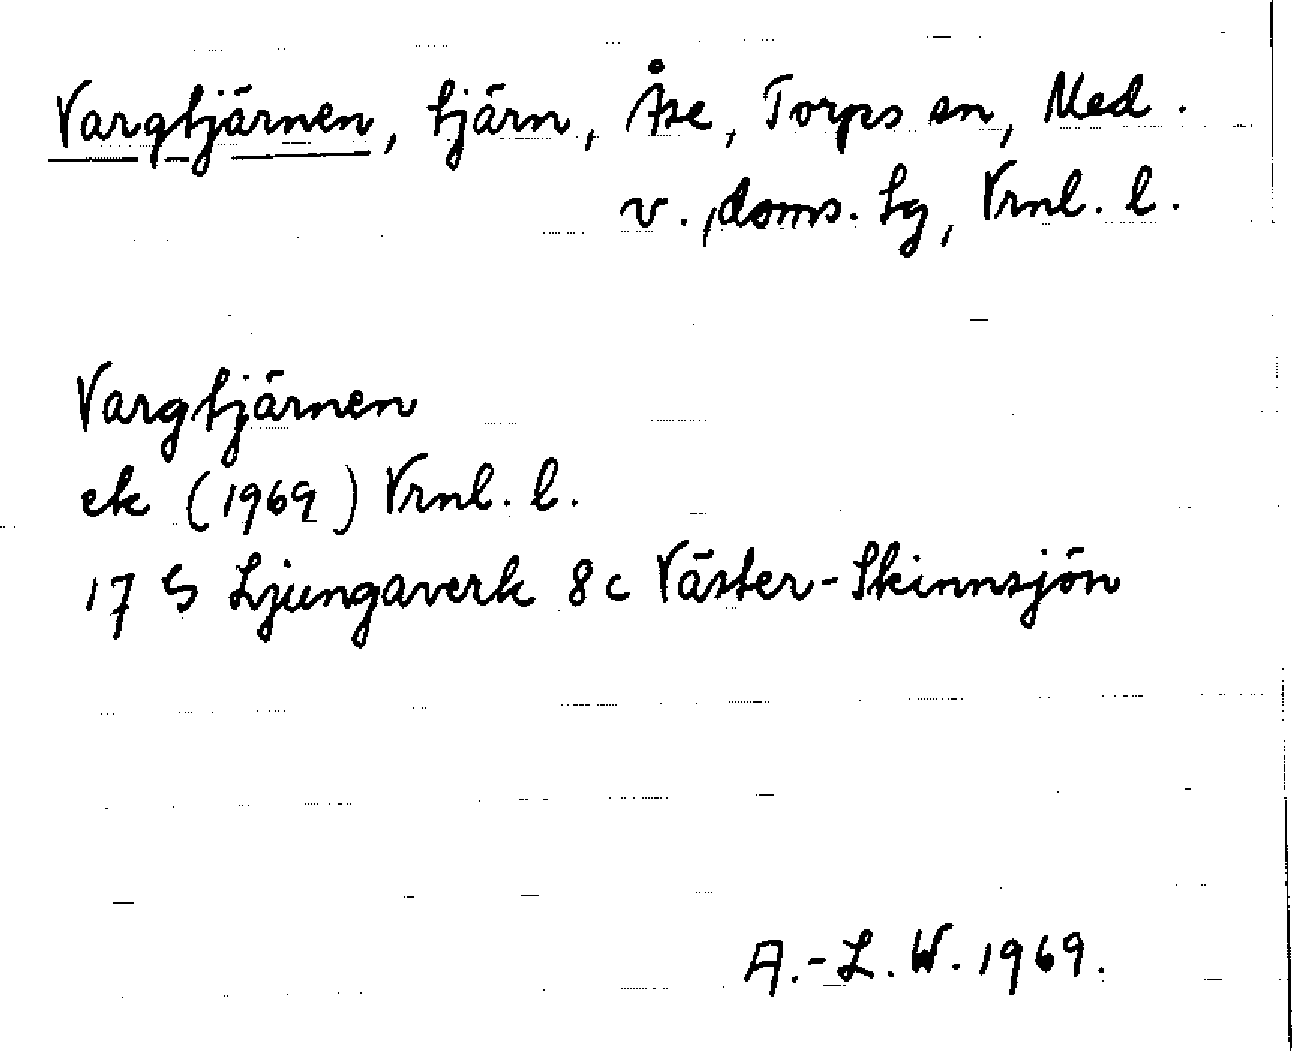 Vargtjärnen, tjärn, Åse, Torps sn, Med.
v. doms. tg, Vrnl. l.
Vargtjärnen
ek (1969) Vrnl. l.
17 G Ljungaverk 8c Väster-Skinnsjön
A.-L. W. 1969.